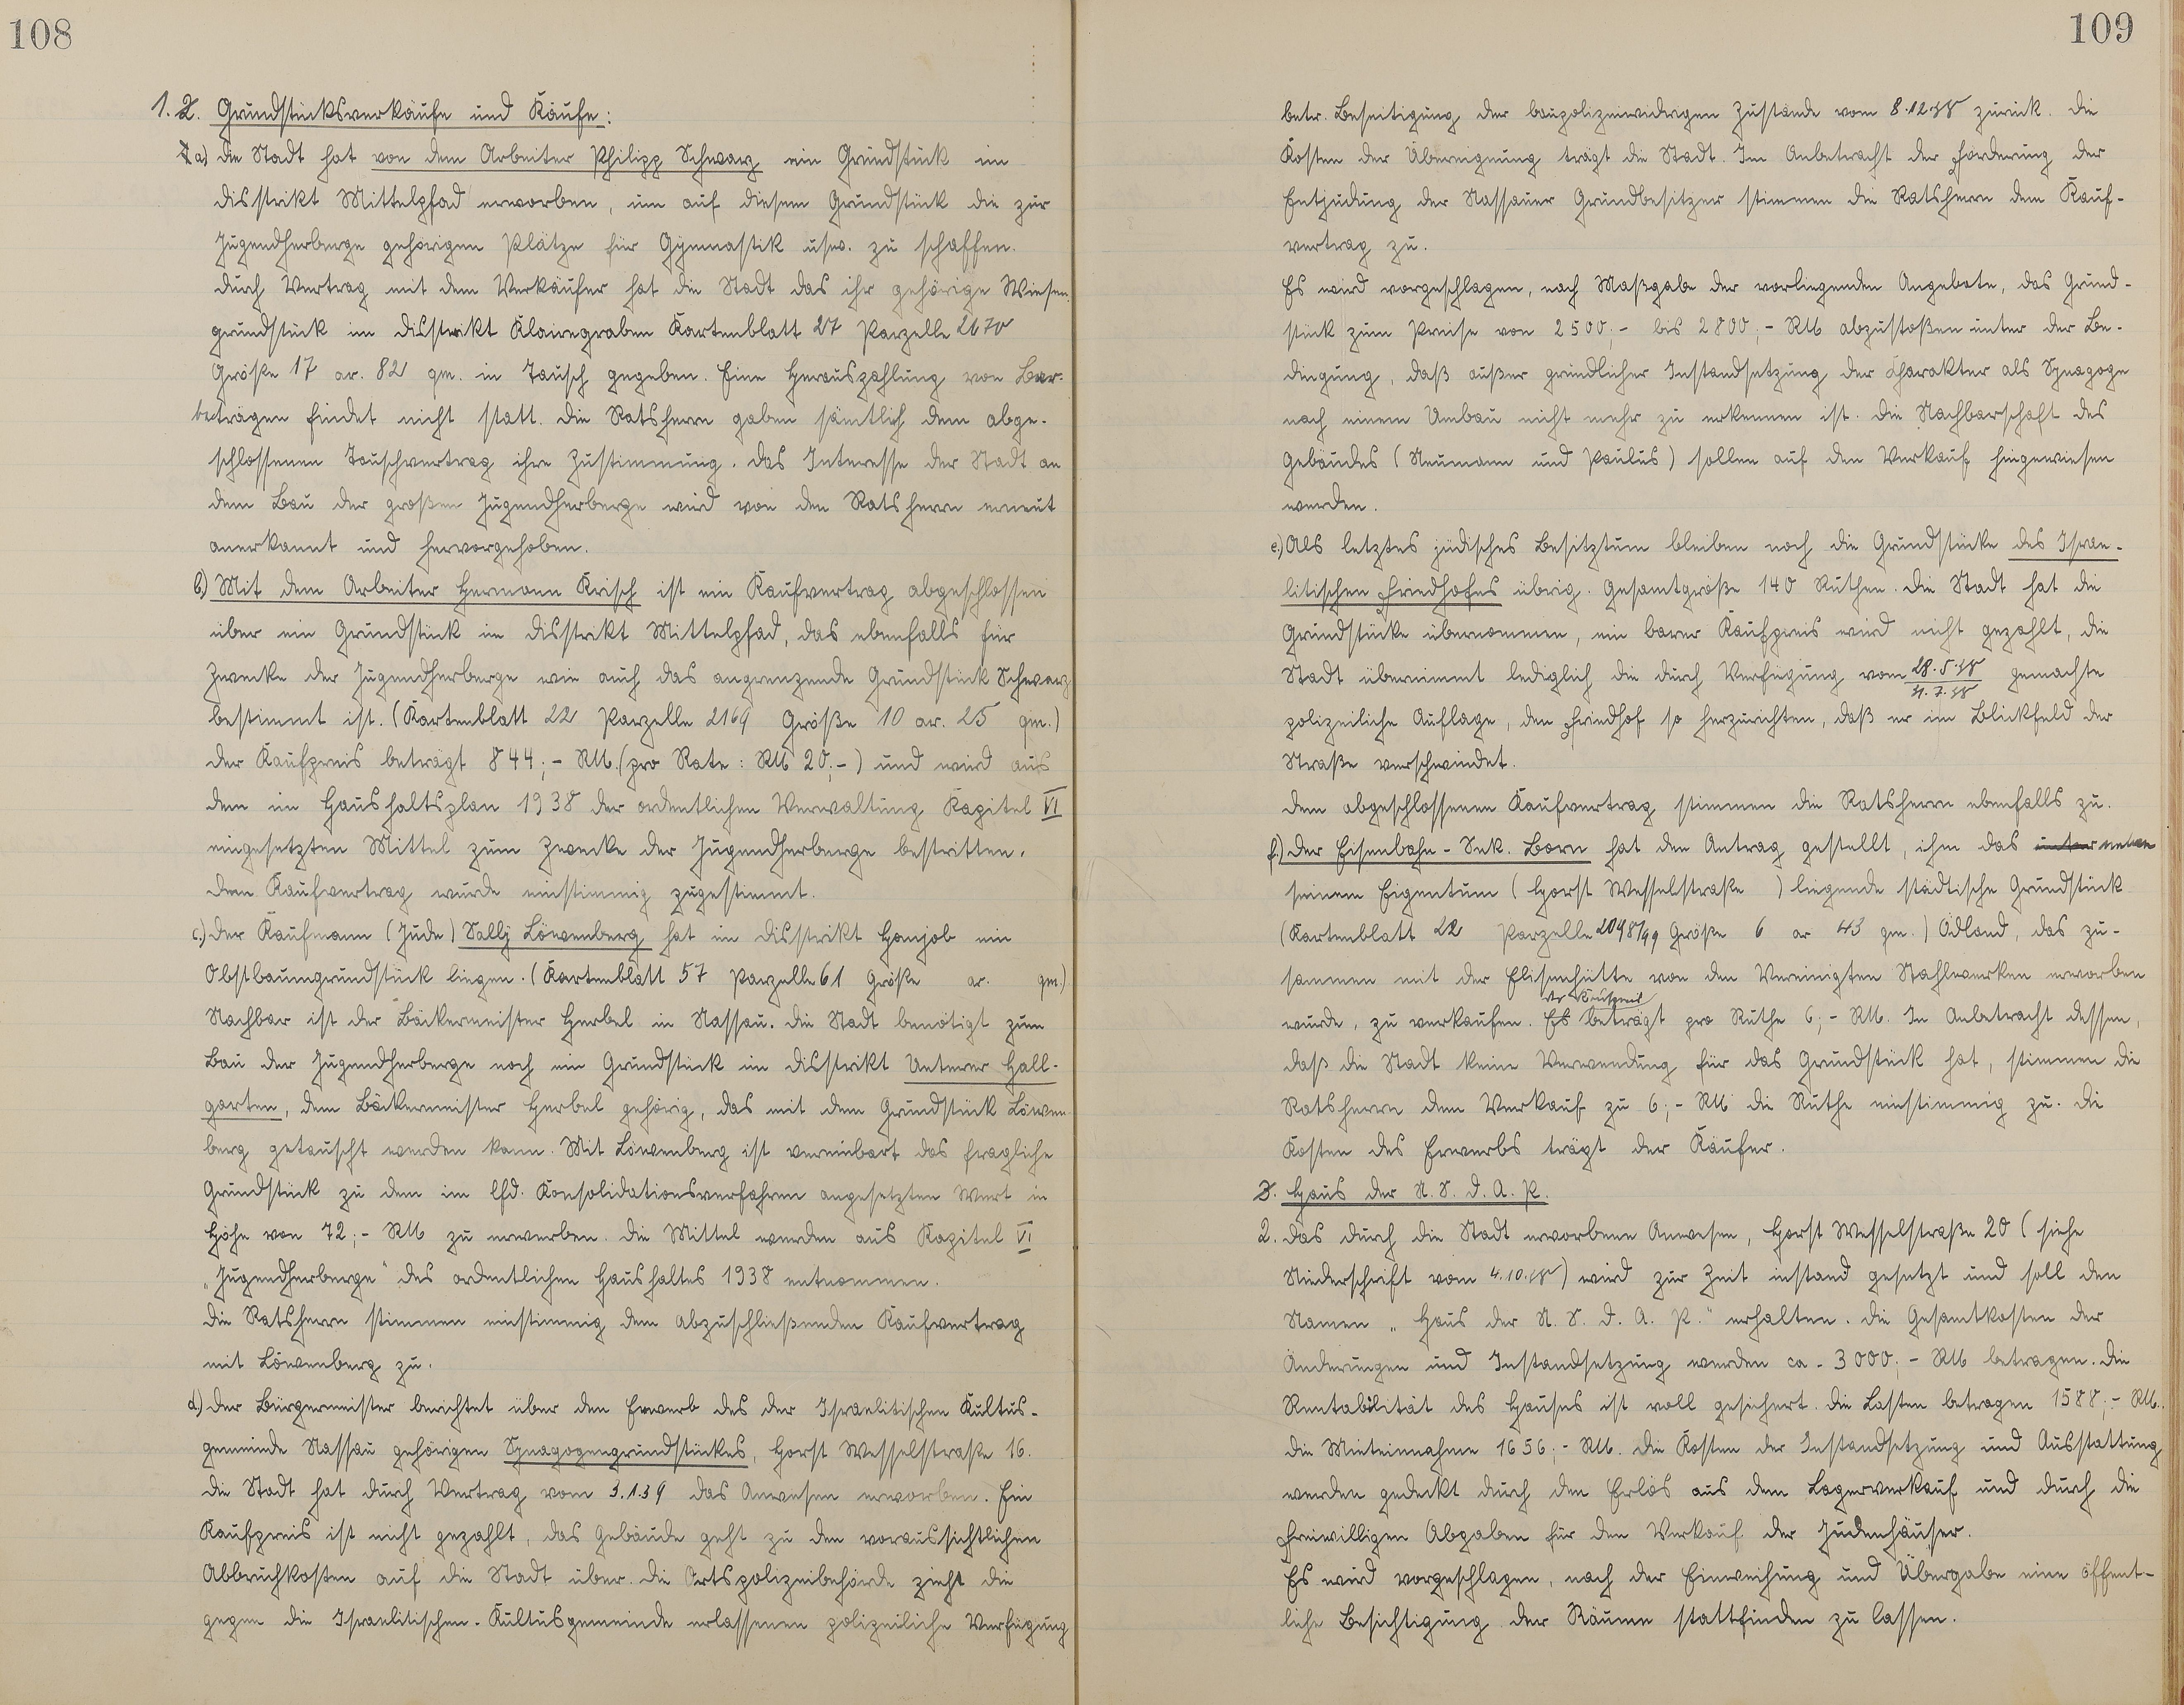 108
1. 2. Grundstücksverkäufe und Käufe:
a) Die Stadt hat von dem Arbeiter Philipp Schwarz ein Grundstück im
Disstrikt Mittelpfad erworben, um auf diesem Grundstück die zur
Jugendherberge gehörigen Plätze für Gymnastik usw. zu schaffen.
Durch Vertrag mit dem Verkäufer hat die Stadt das ihr gehörige Wiesen-
grundstück im Disstrikt Klairegraben Kartenblatt 27 Parzelle 2670
Größe 17 ar. 82 qm. in Tausch gegeben. Eine Herauszahlung von Bar-
beträgen findet nicht statt. Die Ratsherrn gaben sämtlich dem abge-
schlossenen Tauschvertrag ihre Zustimmung. Das Interesse der Stadt an
dem Bau der großen Jugendherberge wird von den Ratsherrn erneut
anerkannt und hervorgehoben.
b.) Mit dem Arbeiter Hermann Krisch ist ein Kaufvertrag abgeschlossen
über ein Grundstück im Disstrikt Mittelpfad, das ebenfalls für
Zwecke der Jugendherberge wie auch das angrenzende Grundstück Schwarz
bestimmt ist. (Kartenblatt 22 Parzelle 2169 Größe 10 ar. 25 qm.)
Der Kaufpreis beträgt 844,- RM. (pro Rute: RM 20,-) und wird aus
dem im Haushaltsplan 1938 der ordentlichen Verwaltung Kapitel VI
eingesetzten Mittel zum Zwecke der Jugendherberge bestritten.
Dem Kaufvertrag wurde einstimmig zugestimmt.
c.) Der Kaufmann (Jude) Sally Löwenberg hat im Disstrikt Hanjob ein
Obstbaumgrundstück liegen. (Kartenblatt 57 Parzelle 61 Größe ar. qm.)
Nachbar ist der Bäckermeister Herbel in Nassau. Die Stadt benötigt zum
Bau der Jugendherberge noch ein Grundstück im Disstrikt Unterer Hall-
garten, dem Bäckermeister Herbel gehörig, das mit dem Grundstück Löwen-
berg getauscht werden kann. Mit Löwenberg ist vereinbart das fragliche
Grundstück zu dem im lfd. Konsolidationsverfahren angesetzten Wert in
Höhe von 72,- RM zu erwerben. Die Mittel werden aus Kapitel VI
„Jugendherberge" des ordentlichen Haushaltes 1938 entnommen.
Die Ratsherrn stimmen einstimmig dem abzuschließenden Kaufvertrag
mit Löwenberg zu.
d.) Der Bürgermeister berichtet über den Erwerb des der Israelitischen Kultus-
gemeinde Nassau gehörigen Synagogengrundstückes, Horst Wesselstraße 16.
Die Stadt hat durch Vertrag vom 3.1.39 das Anwesen erworben. Ein
Kaufpreis ist nicht gezahlt, das Gebäude geht zu den voraussichtlichen
Abbruchkosten auf die Stadt über. Die Ortspolizeibehörde zieht die
gegen die Israelitischen-Kultusgemeinde erlassenen polizeiliche Verfügung
109
betr. Beseitigung der baupolizeiwidrigen Zustände vom 8.12.38 zurück. Die
Kosten der Übereignung trägt die Stadt. Im Anbetracht der Forderung der
Entjudung der Nassauer Grundbesitzer stimmen die Ratsherrn dem Kauf-
vertrag zu.
Es wird vorgeschlagen, nach Maßgabe der vorliegenden Angebote, das Grund-
stück zum Preise von 2500,- bis 2800,- RM abzustoßen unter der Be-
dingung, daß außer gründlicher Instandsetzung der Charakter als Synagoge
nach einem Umbau nicht mehr zu erkennen ist. Die Nachbarschaft des
Gebäudes (Neumann und Paulus) sollen auf den Verkauf hingewiesen
werden.
e.) Als letztes jüdisches Besitztum bleiben noch die Grundstücke des Israe-
litischen Friedhofes übrig. Gesamtgröße 140 Ruthen. Die Stadt hat die
Grundstücke übernommen, ein barer Kaufpreis wird nicht gezahlt, die
Stadt übernimmt lediglich die durch Verfügung vom 28.5.38 gemachte
polizeiliche Auflage, den Friedhof so herzurichten, daß er im Blickfeld der
Straße verschwindet.
Dem abgeschlossenen Kaufvertrag stimmen die Ratsherrn ebenfalls zu.
f.) Der Eisenbahn-Sek. Born hat den Antrag gestellt, ihm das unter neben
seinem Eigentum (Horst Wesselstraße ) liegende städtische Grundstück
(Kartenblatt 22 Parzelle 2098/99 Größe 6 ar 43 qm.) Ödland, das zu-
sammen mit der Elisenhütte von den Vereinigten Stahlwerken erworben
der Kaufpreis
wurde, zu verkaufen. Es beträgt pro Ruthe 6,- RM. In Anbetracht dessen,
daß die Stadt keine Verwendung für das Grundstück hat, stimmen die
Ratsherrn dem Verkauf zu 6,- RM die Ruthe einstimmig zu. Die
Kosten des Erwerbs trägt der Käufer.
3. Haus der N.S.D.A.P.
2. Das durch die Stadt erworbene Anwesen, Horst Wesselstraße 20 (siehe
Niederschrift vom 4.10.38) wird zur Zeit instand gesetzt und soll den
Namen „Haus der N.S.D.A.P." erhalten. Die Gesamtkosten der
Änderungen und Instandsetzung werden ca. 3000,- RM betragen. Die
Rentabilität des Hauses ist voll gesichert. Die Lasten betragen 1588,- RM.
Die Mieteinnahme 1656,- RM. Die Kosten der Instandsetzung und Ausstattung
werden gedeckt durch den Erlös aus dem Lagerverkauf und durch die
freiwilligen Abgaben für den Verkauf der Judenhäuser.
Es wird vorgeschlagen, nach der Einweihung und Übergabe eine öffent-
liche Besichtigung der Räume stattfinden zu lassen.